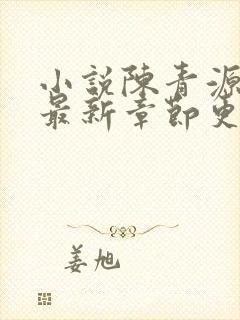 小說陳青源
最新章節更
姜旭